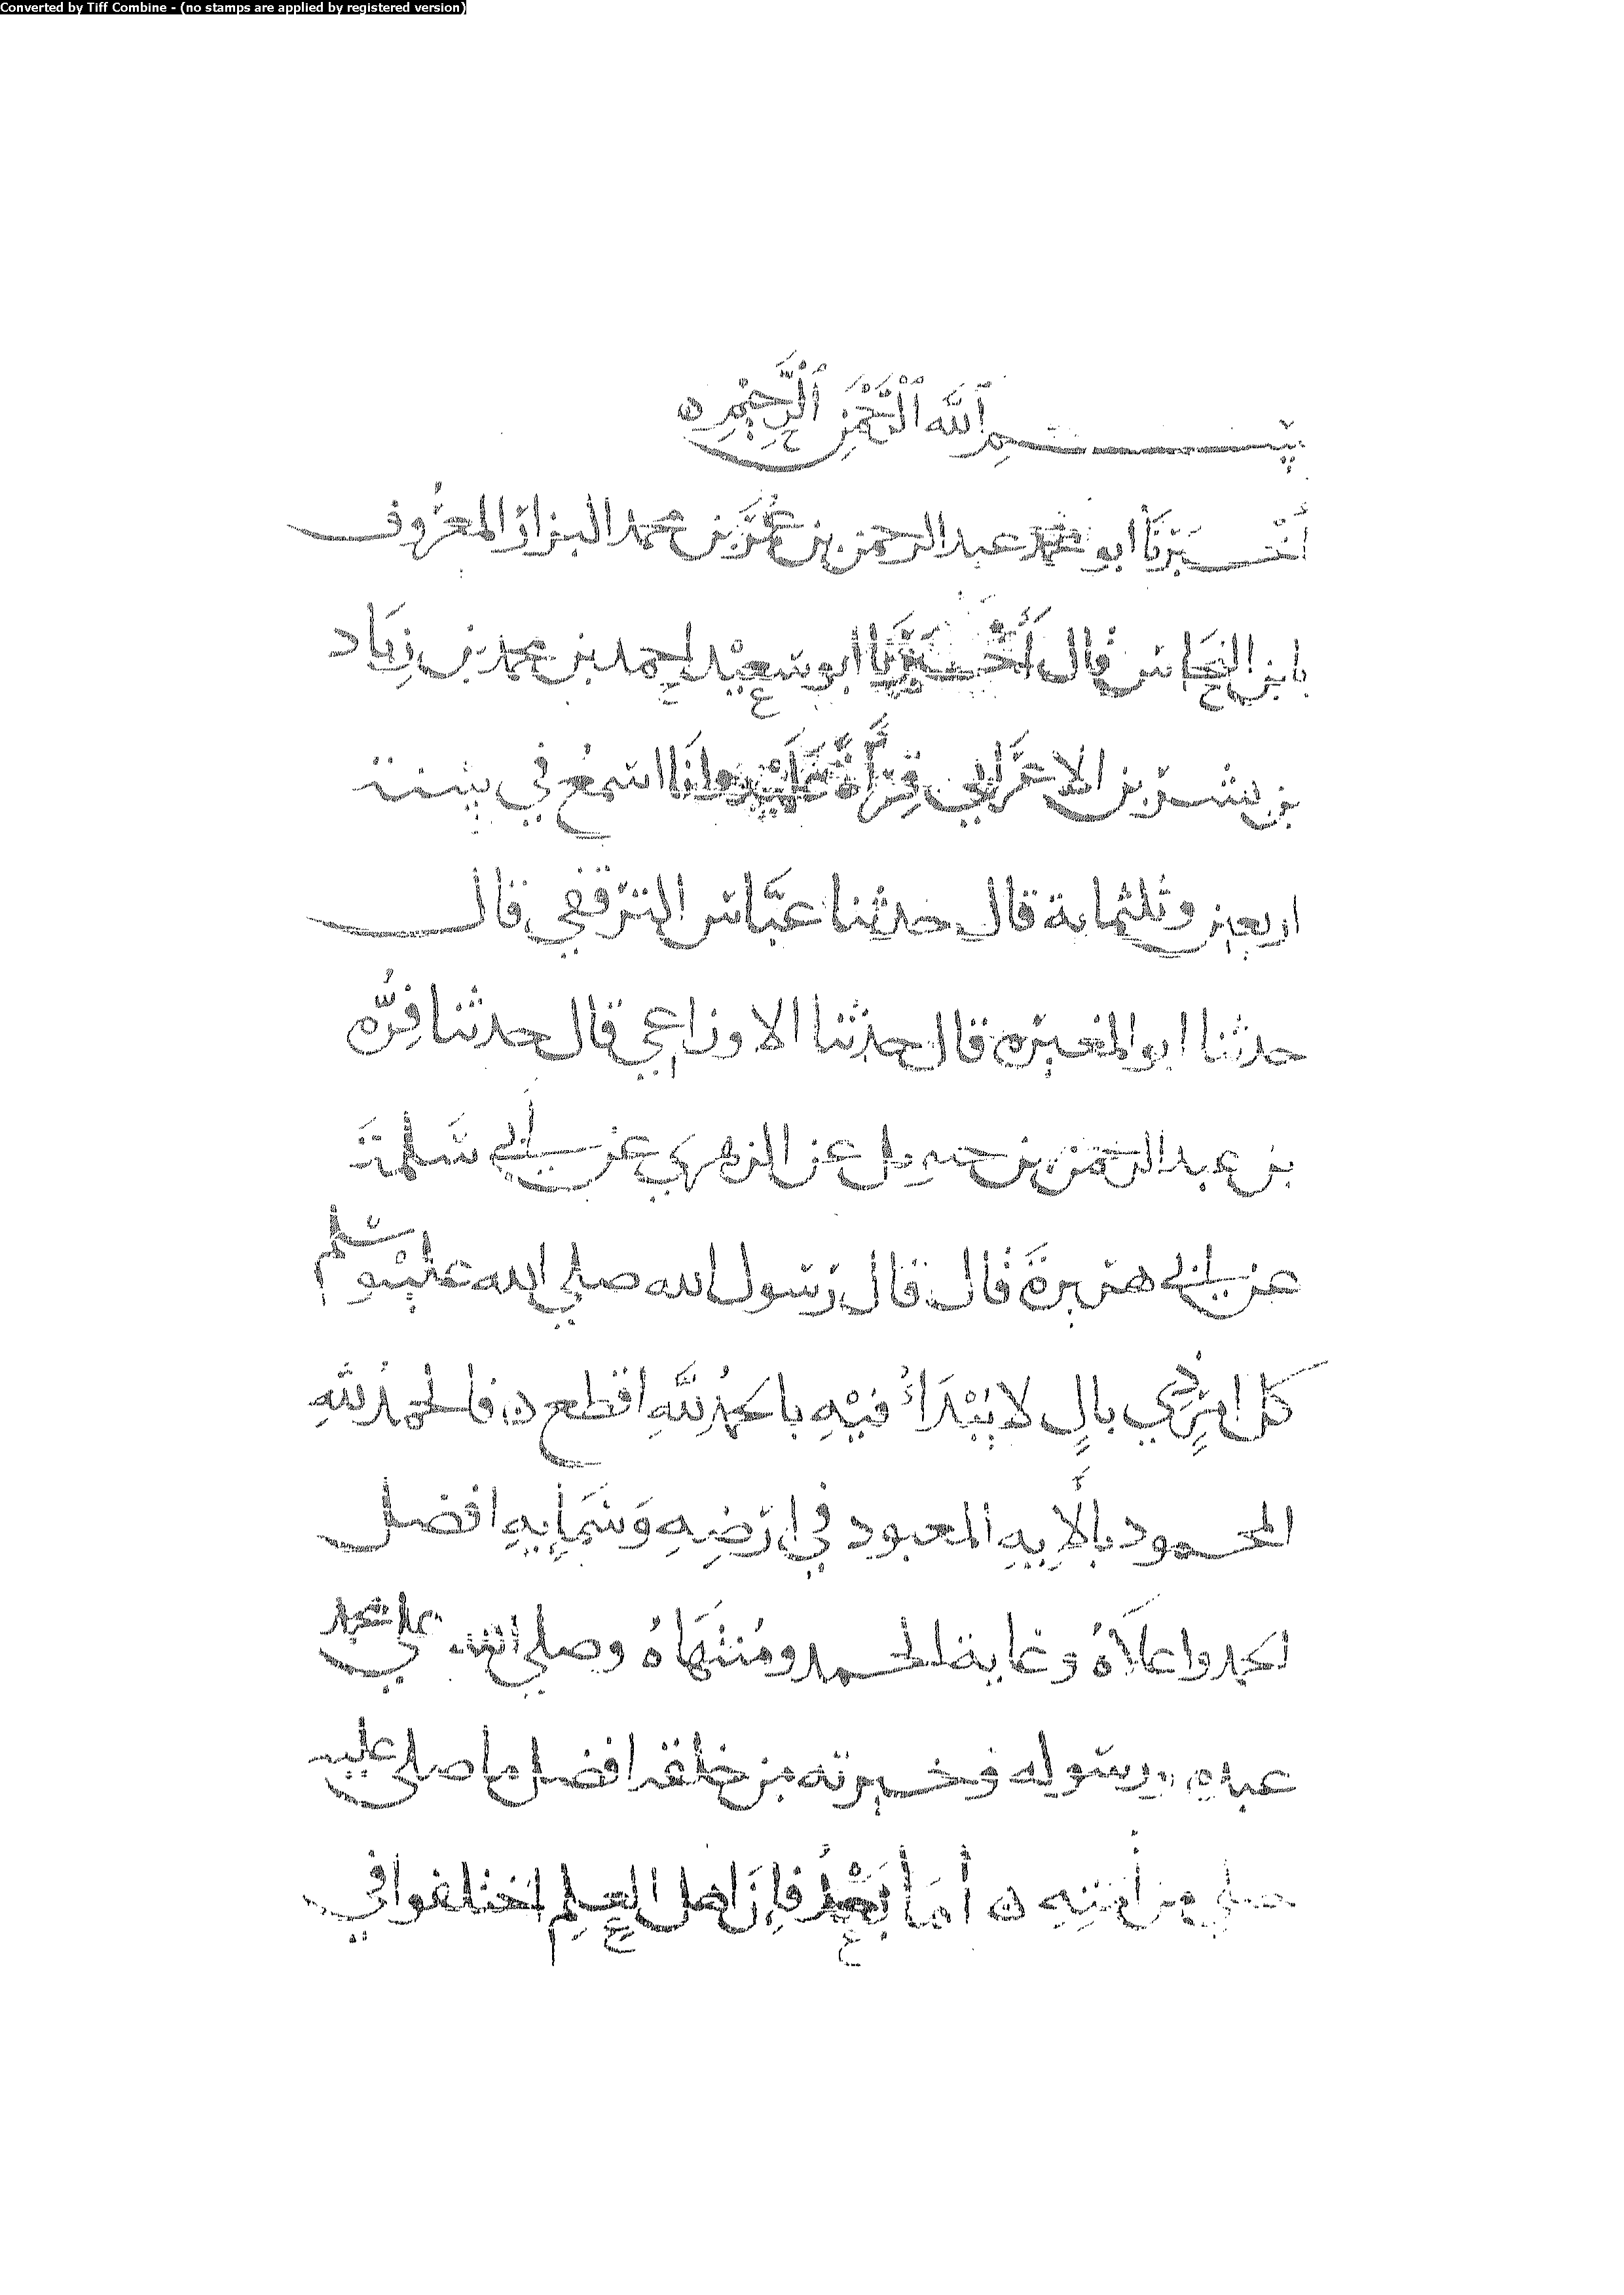 Converted by Tiff Combine - (no stamps are applied by registered version)
بِسْمِ ٱللَّهِ ٱلرَّحْمَٰنِ ٱلرَّحِيْمِ ه
أَخْبَرَنَا ابو محمد عبد الرحمن بن عُمَرَ بن محمد البزاز المعرُوف
بابن النحَاس قال أَخْبَرَنَا ابو سعِيْد احمد بن محمد بن زِيَاد
بن بشر بن الاعرَابي قِرَأَةً عَلَيْهِ وانَا اسمعُ في سنة
اربعين وثلثماية قال حدثنا عبَّاس الترقفي قال
حدثنا ابو المغيرة قال حدثنا الاوزاعي قال حدثنا قُرّه
بن عبد الرحمن بن حيويل عن الزهري عن أبي سَلمَة
عن ابي هريرةَ قال قال رسول الله صلى الله عليْه وسلم
كل امرٍ ذي بالٍ لا يُبْدَأُ فيْهِ بالحمدُ للَّهِ اقطع ه فالحمدُ للَّهِ
المحمود بالَايِهِ المعبود في ارضِهِ وَسَمَايِهِ افضل
الحمد واعلَاهُ وغاية الحمد ومُنتهَاهُ وصلى الله على محمد
عبده ورسوله وخيرته من خلقه افضل ما صلى عليه
صلى من أمتِهِ ه أما بَعْدُ فإن اهل العِلم اختلفوا في